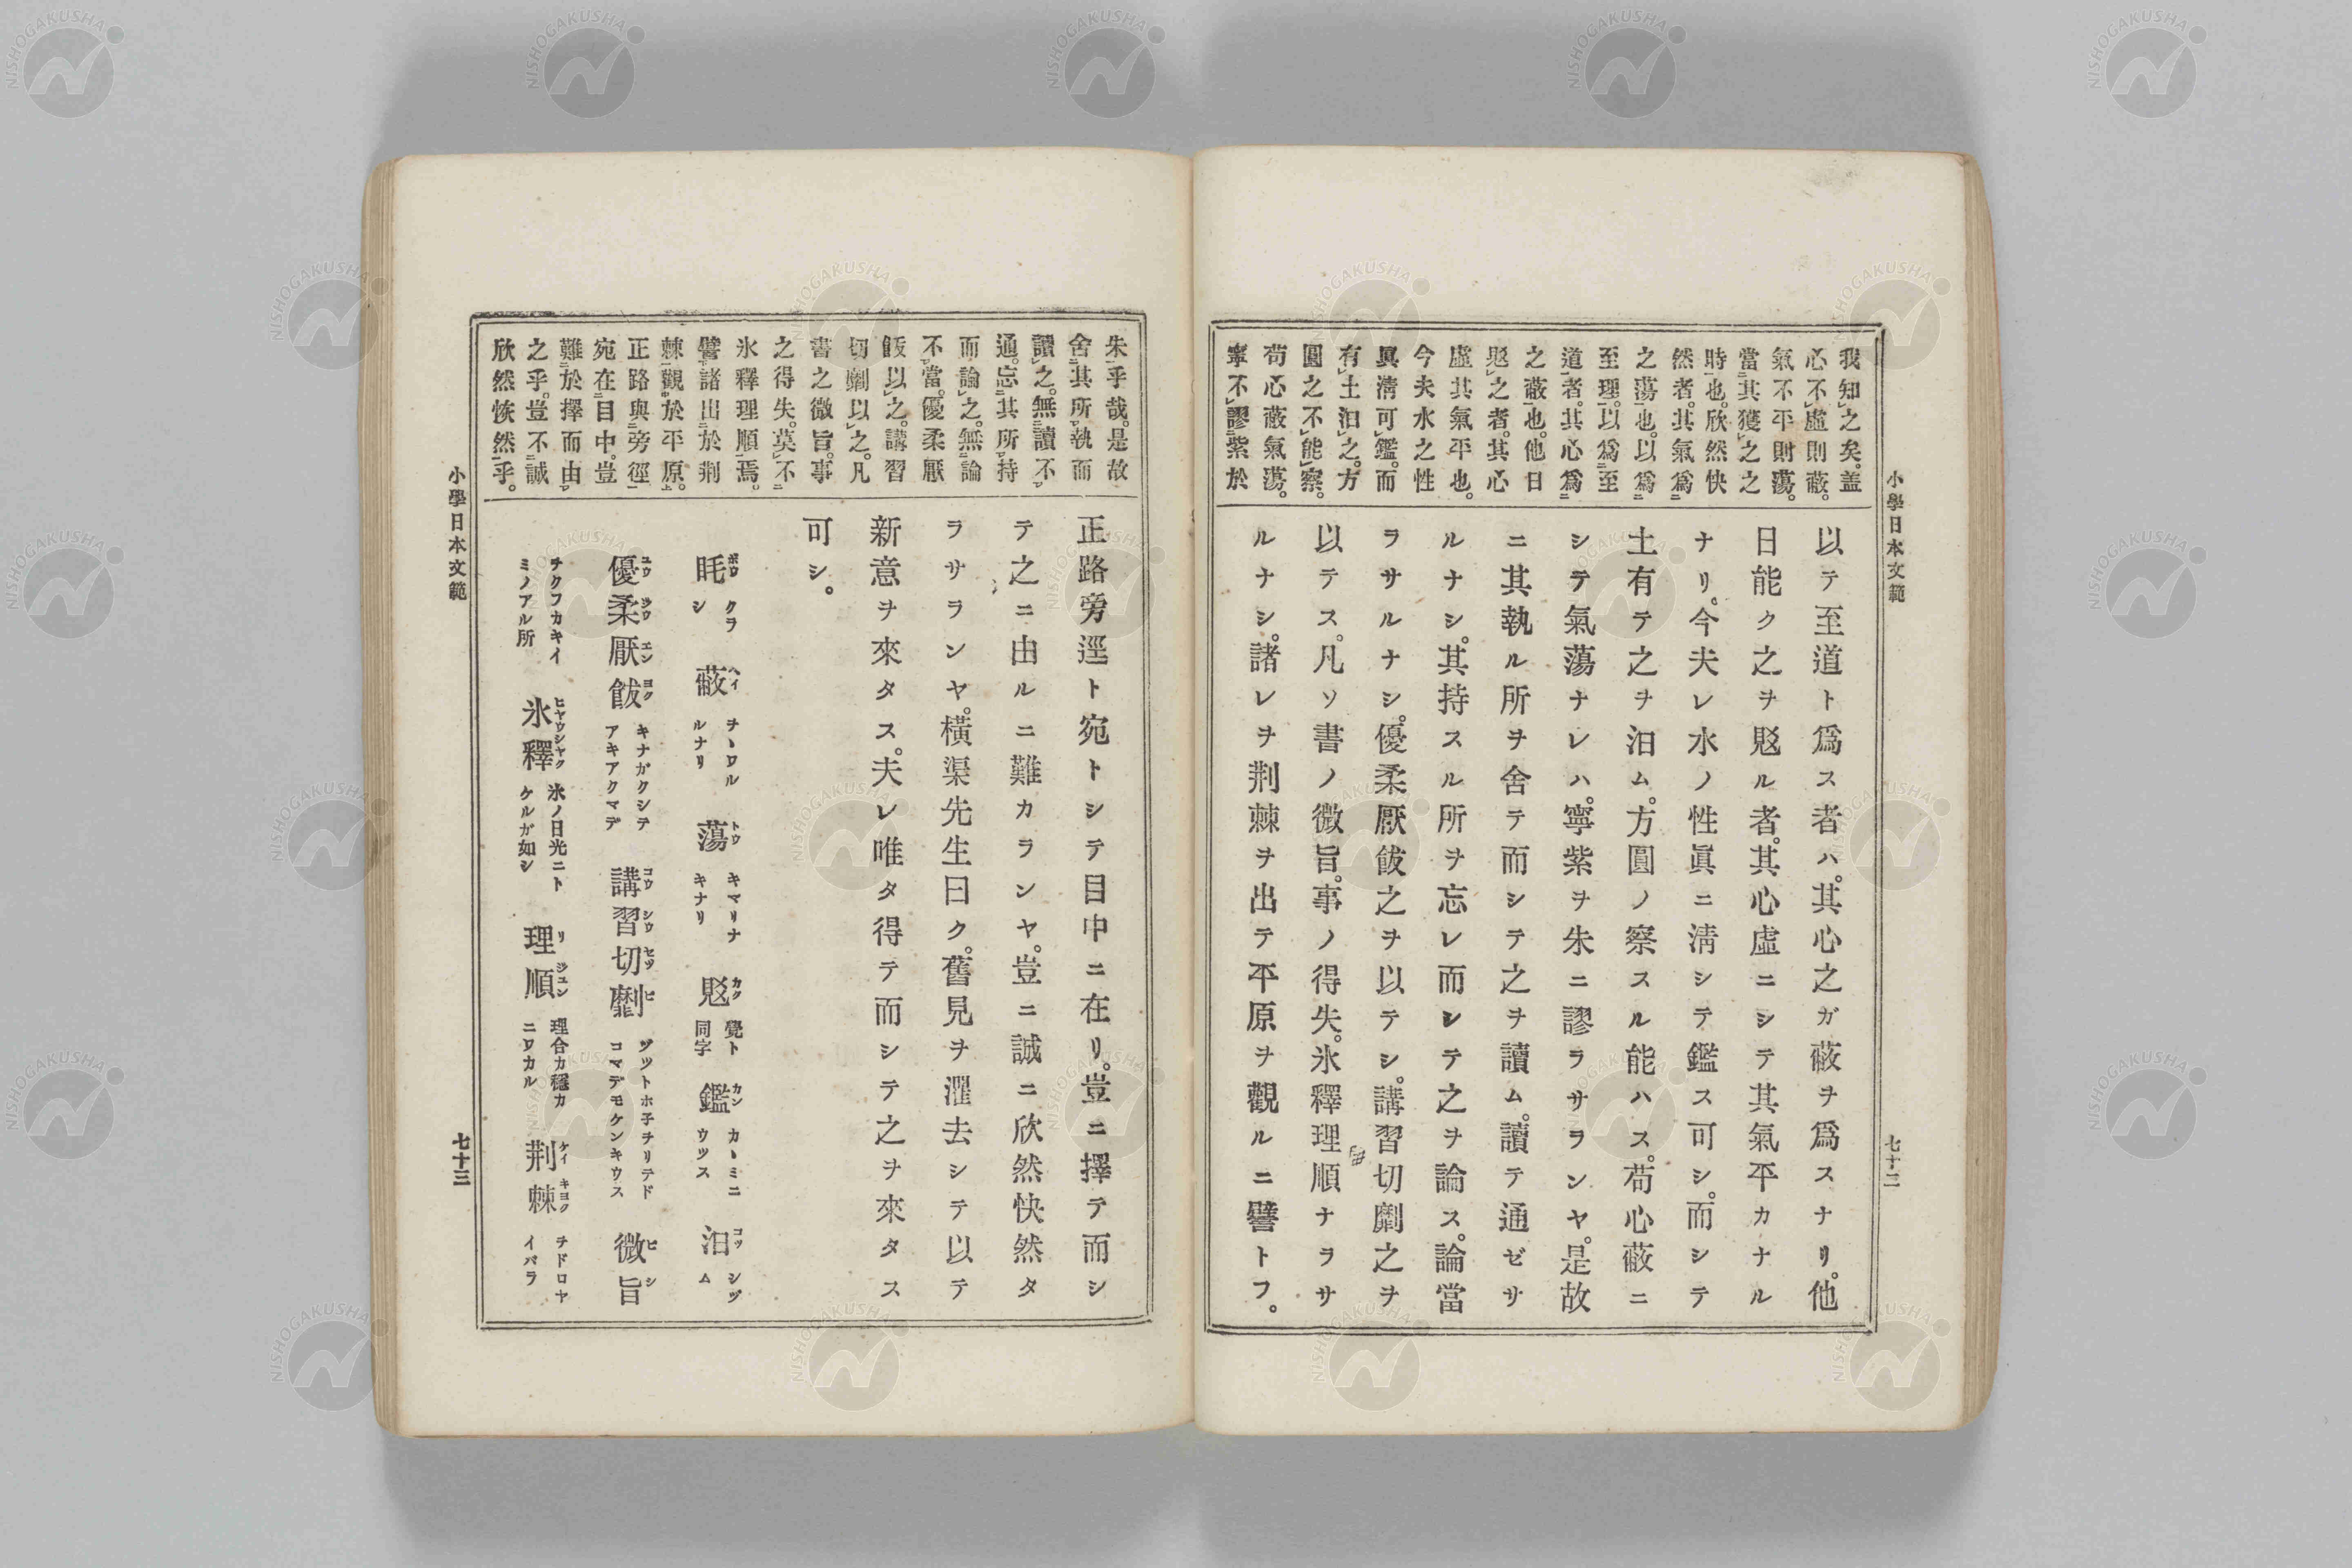 小學日本文範
七十二
我知之矣。蓋
心不虛則蔽。
氣不平則蕩。
當其獲之之
時也。欣然快
然者。其氣爲
之蕩也。以爲
至理。以爲至
道者。其心爲
之蔽也。他日
覐之者。其心
虛其氣平也。
今夫水之性
眞淸可鑑。而
有土汨之。方
圓之不能察。
苟心蔽氣蕩。
寧不謬紫於
以テ至道ト爲ス者ハ。其心之ガ蔽ヲ爲スナリ。他
日能ク之ヲ覐ル者。其心虛ニシテ其氣平カナル
ナリ。今夫レ水ノ性眞ニ淸シテ鑑ス可シ。而シテ
土有テ之ヲ汨ム。方圓ノ察スル能ハス。苟心蔽ニ
シテ氣蕩ナレハ。寧紫ヲ朱ニ謬ラサランヤ。是故
ニ其執ル所ヲ舍テ而シテ之ヲ讀ム。讀テ通ゼサ
ルナシ。其持スル所ヲ忘レ而シテ之ヲ論ス。論當
ラサルナシ。優柔厭飫之ヲ以テシ。講習切劘之ヲ
以テス。凡ソ書ノ微旨。事ノ得失。氷釋理順ナラサ
ルナシ。諸レヲ荆棘ヲ出テ平原ヲ觀ルニ譬トフ。
朱乎哉。是故
舍其所執而
讀之。無讀不
通。忘其所持
而論之。無論
不當。優柔厭
飫以之。講習
切劘以之。凡
書之微旨。事
之得失。莫不
氷釋理順焉。
譬諸出於荆
棘觀於平原。
正路與旁徑
宛在目中。豈
難於擇而由
之乎。豈不誠
欣然恢然乎。
正路旁逕ト宛トシテ目中ニ在リ。豈ニ擇テ而シ
テ之ニ由ルニ難カランヤ。豈ニ誠ニ欣然快然タ
ラサランヤ。橫渠先生曰ク。舊見ヲ濯去シテ以テ
新意ヲ來タス。夫レ唯タ得テ而シテ之ヲ來タス
可シ。
眊ボウ クラシ 蔽ヘイ ヲヽワルルナリ 蕩トウ キマリナキナリ 覐カク 覺ト同字 鑑カン カヽミニウツス 汨コツ シヅム
優柔厭飫ユウジウエンヨク キナガクシテアキアクマデ 講習切劘コウシウセツヒ ヅツトホ子チリテドコマデモケンキウス 微旨ビシ
チクフカキイミノアル所 氷釋ヒヤウシヤク 氷ノ日光ニトケルガ如シ 理順リジユン 理合カ穩カニワカル 荆棘ケイキヨク チドロヤイバラ
小學日本文範
七十三